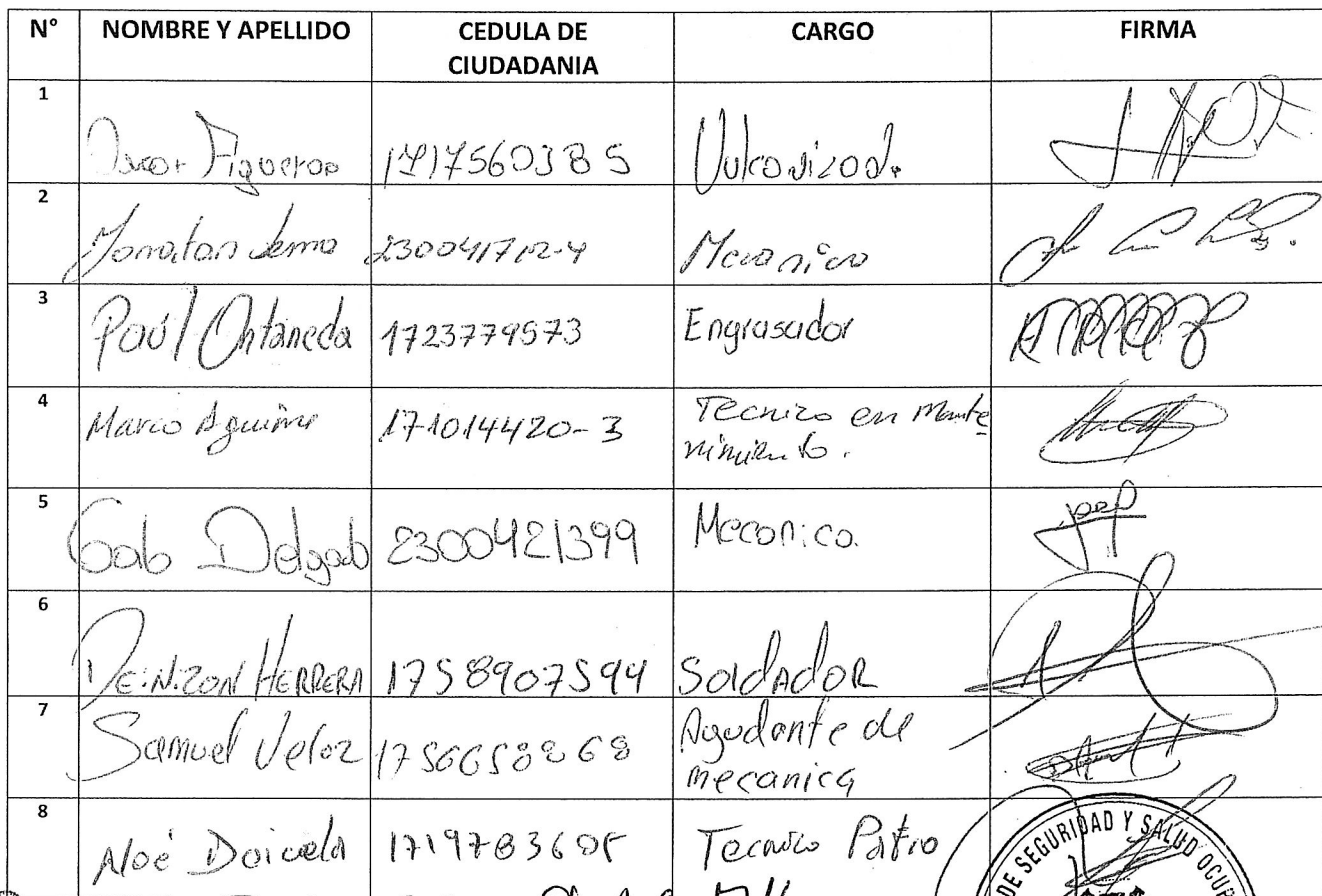 N° NOMBRE Y APELLIDO CEDULA DE CIUDADANIA CARGO FIRMA
1 Oscar Figueroa 1717560385 Vulcanizad.
2 Jonatan Lema 230041712-4 Mecanico
3 Paúl Ontaneda 1723779573 Engrasador
4 Marco Aguirre 171014420-3 Tecnico en Mante
nimiento.
5 Gab Delgado 2300421399 Meconico.
6 DEiNiZON HERRERA 1758907594 SoldAdoR
7 Samuel Veloz 1756658868 Ayudante de
mecanica
8 Noé Tecnico Patio
DE SEGURIDAD Y SALUD OCUP